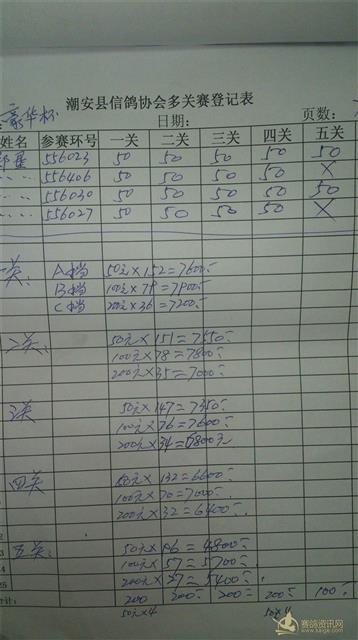 豪华杯
潮安县信鸽协会多关赛登记表
日期: 页数:
姓名 参赛环号 一关 二关 三关 四关 五关
556023 50 50 50 50 50
556406 50 50 50 50 X
556030 50 50 50 50 50
556027 50 50 50 50 X
关: A档 50元×152=7600
B档 100元×79=7900
C档 200元×36=7200
二关: 50元×151=7550
100元×78=7800
200元×35=7000
3关 50元×147=7350
100元×76=7600
200元×34=6800元
四关 50元×132=6600
100元×70=7000
200元×32=6400
五关: 50元×96=4800
100元×57=5700
200元×27=5400
200 200 200 200 100
50元×4 50×4
赛鸽资讯网
www.saige.com